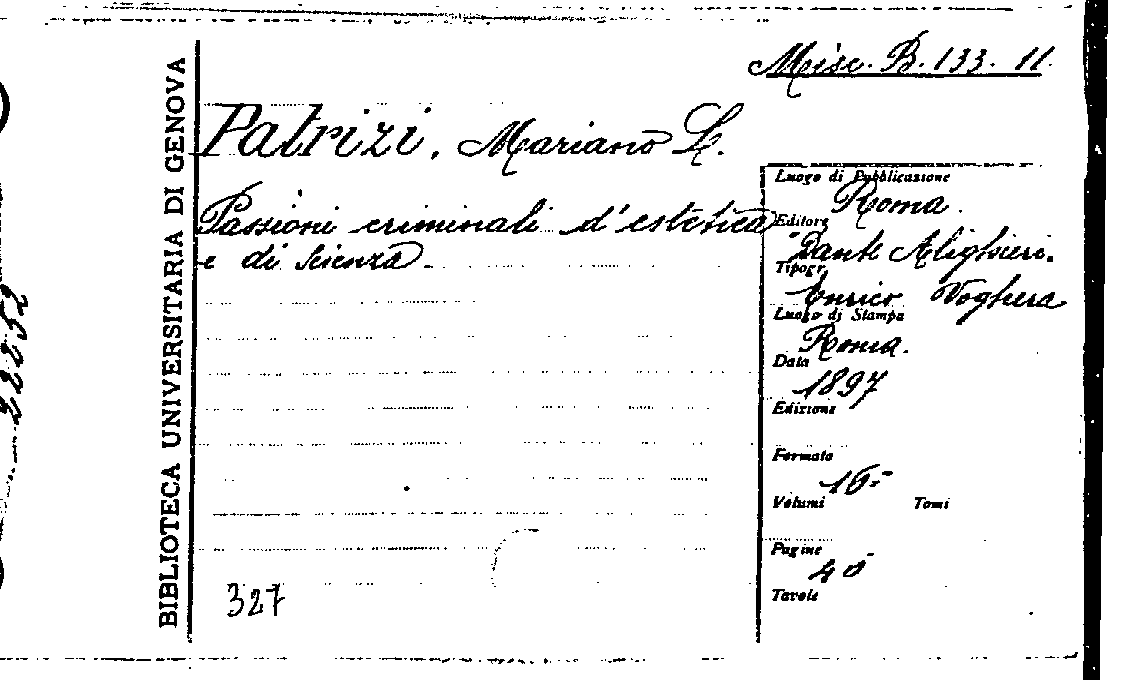 Misc. B. 133. 11.
BIBLIOTECA UNIVERSITARIA DI GENOVA
Patrizi, Mariano L.
Passioni criminali d'estetica
e di scienza.
Luogo di Pubblicazione
Roma.
Editore
Dante Alighieri.
Tipogr.
Enrico Voghera
Luogo di Stampa
Roma.
Data
1897
Edizione
Formato
16º
Volumi Tomi
Pagine
40
Tavole
327